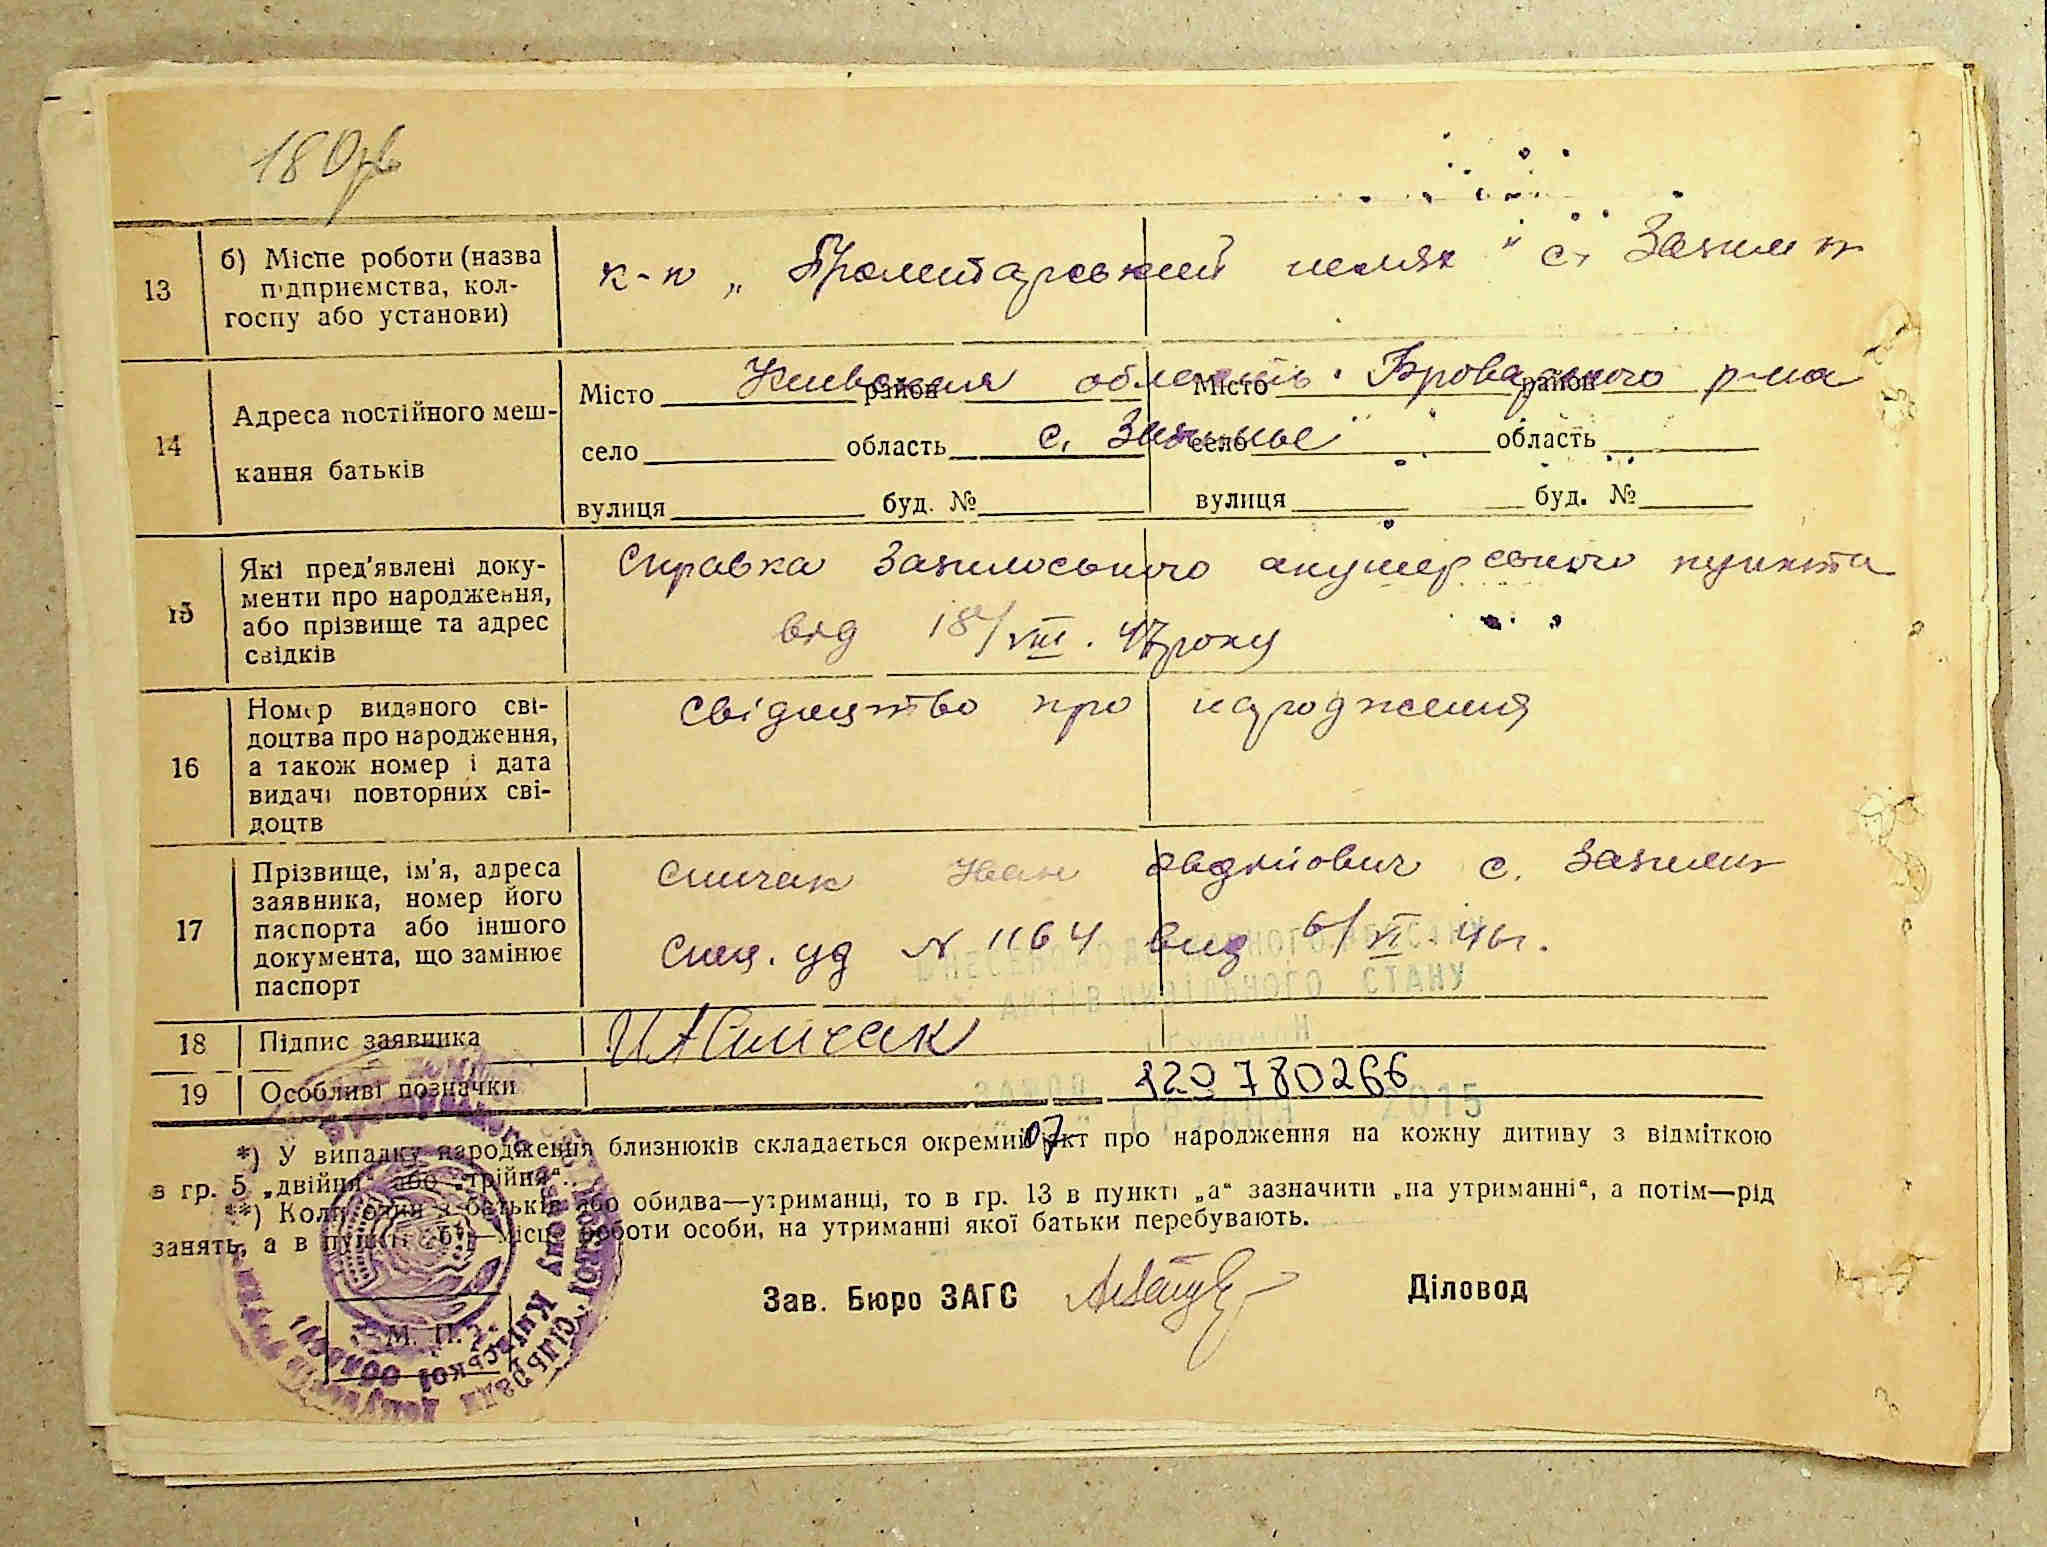 180 зв
13 б) Місце роботи (назва
підприємства, кол-
госпу або установи)
к-п „Пролетарський шлях" с. Зазим'я
14 Адреса постійного меш-
кання батьків
Місто район Місто район
Киевская область. Броварського р-на
село область село область
с. Зазимье
вулиця буд. № вулиця буд. №
15 Які пред'явлені доку-
менти про народження,
або прізвище та адрес
свідків
Справка Зазимського акушерського пункта
від 18/VIII. 47 року
16 Номер виданого сві-
доцтва про народження,
а також номер і дата
видачі повторних сві-
доцтв
свідоцтво про народження
17 Прізвище, ім'я, адреса
заявника, номер його
паспорта або іншого
документа, що замінює
паспорт
Спичак Иван Авдійович с. Зазим'я
Спец. уд № 1164 вид 6/VI 46 г.
АКТІВ ЦИВІЛЬНОГО СТАНУ
ГРОМАДЯН
18 Підпис заявника
И А Спичак
19 Особливі позначки
120780266
2015
07
*) У випадку народження близнюків складається окремий акт про народження на кожну дитину з відміткою
в гр. 5 „двійня" або „трійня".
**) Коли один з батьків або обидва—утриманці, то в гр. 13 в пункті „а" зазначити „на утриманні", а потім—рід
занять, а в пункті „б"—місце роботи особи, на утриманні якої батьки перебувають.
Зав. Бюро ЗАГС Діловод
М. П.
Київської області